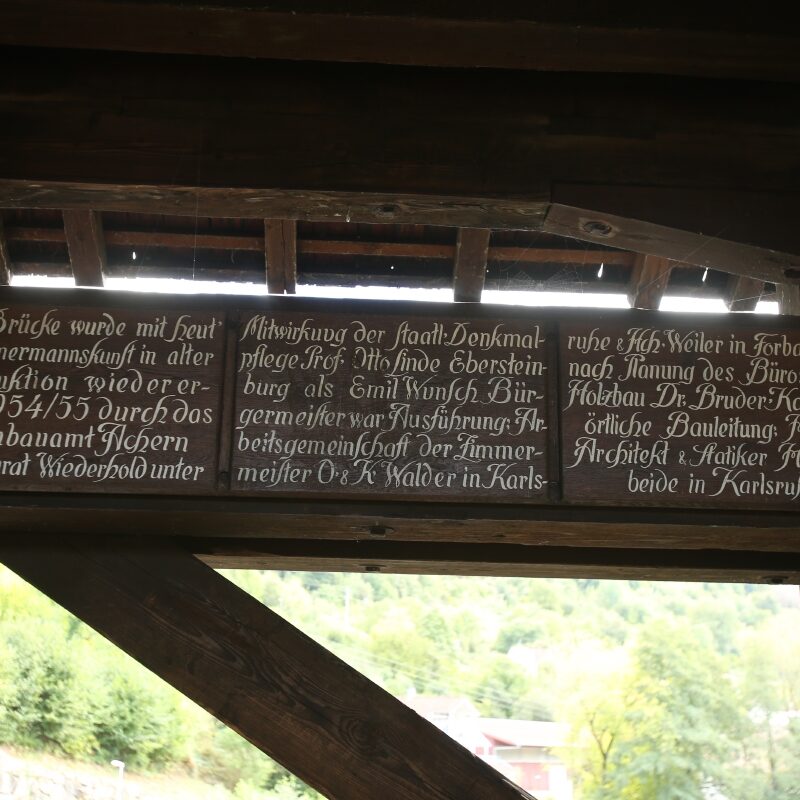 Brücke wurde mit heut'
mermannskunst in alter
uktion wieder er-
954/55 durch das
nbauamt Achern
rat Wiederhold unter
Mitwirkung der staatl. Denkmal-
pflege Prof. Otto Linde Eberstein-
burg als Emil Wunsch Bür-
germeister war Ausführung: Ar-
beitsgemeinschaft der Zimmer-
meister O. & K. Walder in Karls-
ruhe & Hch. Weiler in Forba
nach Planung des Büro
Holzbau Dr. Bruder-Ka
örtliche Bauleitung:
Architekt & Statiker
beide in Karlsruh